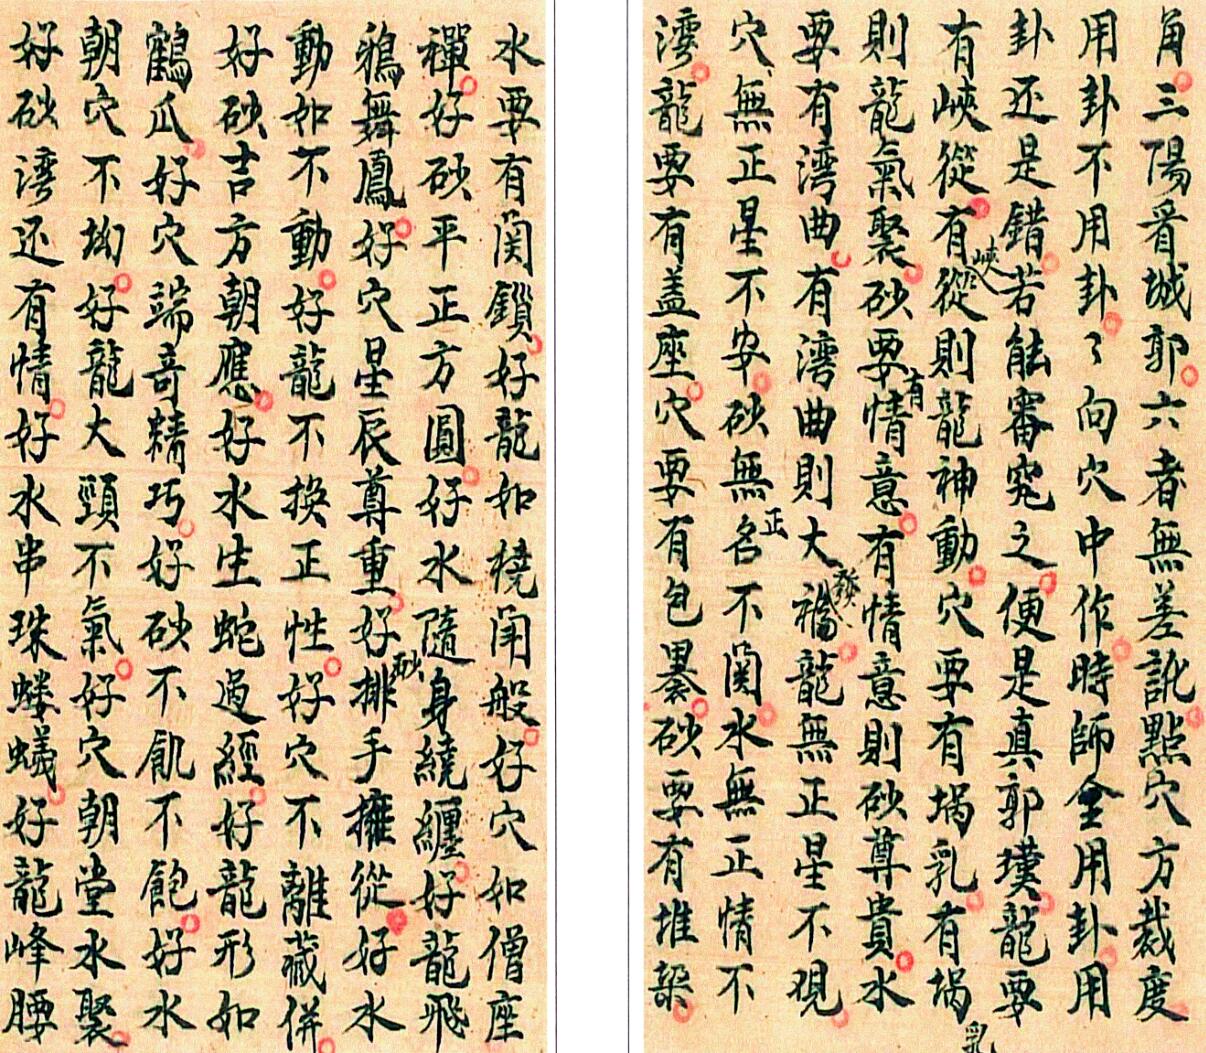 角三陽看城郭六者無差訛點穴方裁度
用卦不用卦々向穴中作時師全用卦用
卦还是錯若能審究之便是真郭璞龍要
有峽從有峽從則龍神動穴要有堝乳有堝乳
則龍氣聚砂要有情意有情意則砂尊貴水
要有湾曲有湾曲則大發福龍無正星不現
穴無正星不安砂無正名不関水無正情不
湾龍要有盖座穴要有包裹砂要有堆梁
水要有関鎖好龍如橈闹般好穴如僧座
禪好砂平正方圓好水隨身繞纏好龍飛
鴉舞鳳好穴星辰尊重好砂排手擁從好水
動如不動好龍不換正性好穴不離藏併
好砂吉方朝應好水生蛇過經好龍形如
鶴爪好穴端奇精巧好砂不飢不飽好水
朝穴不拗好龍大頸不氣好穴朝堂水聚
好砂湾还有情好水串珠螻蟻好龍峰腰